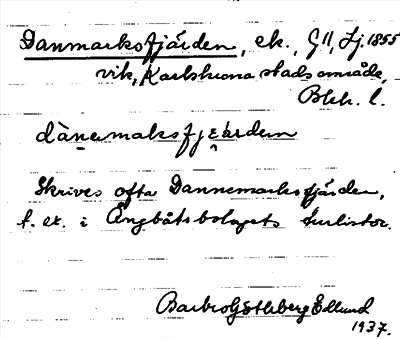 Danmarksfjärden, ek., G11, Lj. 1855
vik, Karlskrona stadsområde,
Blek. l.
dànemaksfjæ̀rden
Skrives ofta Dannemarksfjärden,
t. ex. i Ångbåtsbolagets turlistor.
Barbro Götlberg Edlund
1937.